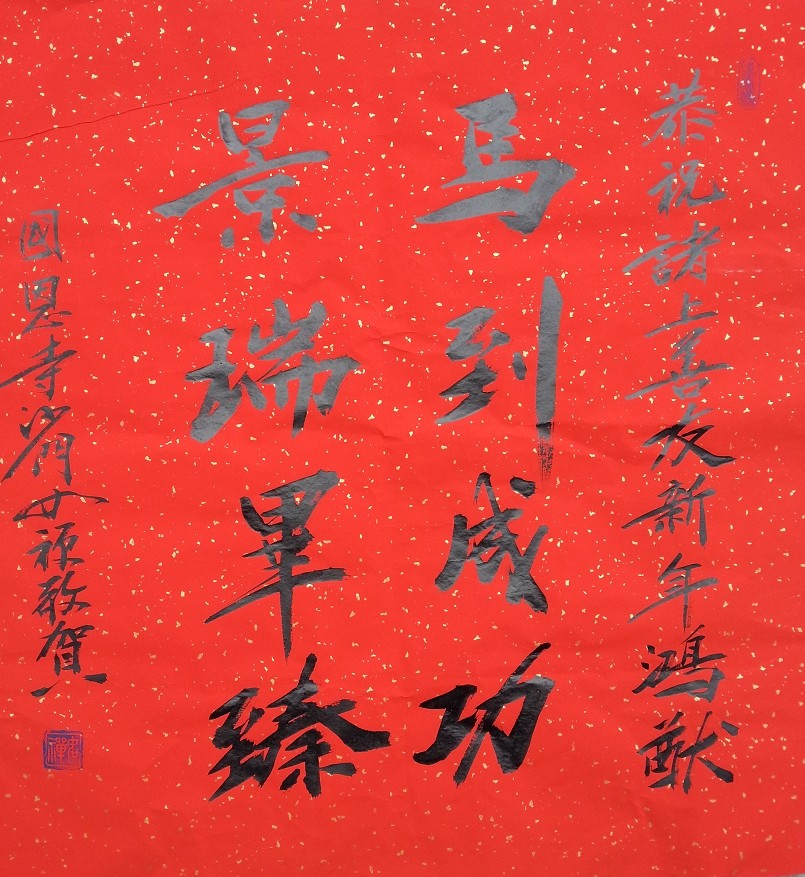 恭祝諸上善友新年鴻猷
馬到成功
景瑞畢臻
國恩寺沙門大禪敬賀